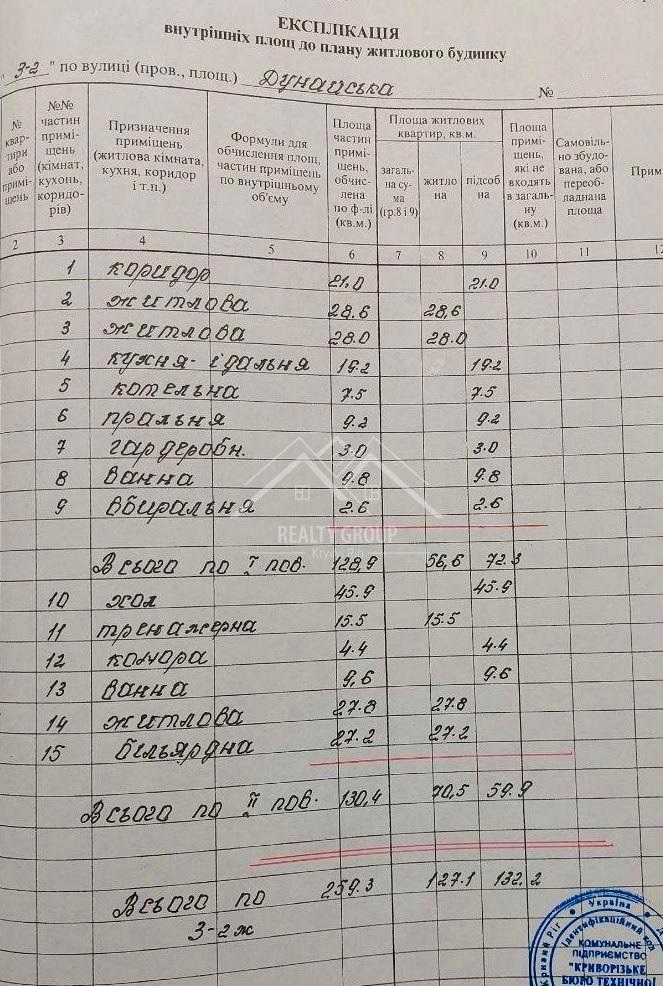 ЕКСПЛІКАЦІЯ
внутрішніх площ до плану житлового будинку
" 3-2 " по вулиці (пров., площ.) Дунайська №
№ квартири або приміщень
№№ частин приміщень (кімнат, кухонь, коридорів)
Призначення приміщень (житлова кімната, кухня, коридор і т.п.)
Формули для обчислення площ, частин приміщень по внутрішньому об'єму
Площа частин приміщ, обчислена по ф-лі (кв.м.)
Площа житлових квартир, кв.м.
загальна сума (гр.8 і 9)
житлона
підсобна
Площа приміщень, які не входять в загальну (кв.м.)
Самовільно збудована, або переобладнана площа
Прим
2 3 4 5 6 7 8 9 10 11 12
1 коридор 21.0 21.0
2 житлова 28.6 28,6
3 житлова 28.0 28.0
4 кухня-їдальня 19.2 19.2
5 котельна 7.5 7.5
6 пральня 9.2 9.2
7 гардеробн. 3.0 3.0
8 ванна 9.8 9.8
9 вбиральня 2.6 2.6
REALTY GROUP
Kryvyi Rih
Всього по I пов. 128,9 56,6 72.3
10 хол 45.9 45.9
11 тренажерна 15.5 15.5
12 комора 4.4 4.4
13 ванна 9,6 9.6
14 житлова 27.8 27.8
15 більярдна 27.2 27.2
Всього по II пов. 130,4 70,5 59.9
Всього по 259.3 127.1 132,2
3-2ж
Кривий Ріг * Україна *
Ідентифікаційний код
КОМУНАЛЬНЕ
ПІДПРИЄМСТВО
"КРИВОРІЗЬКЕ
БЮРО ТЕХНІЧНОЇ